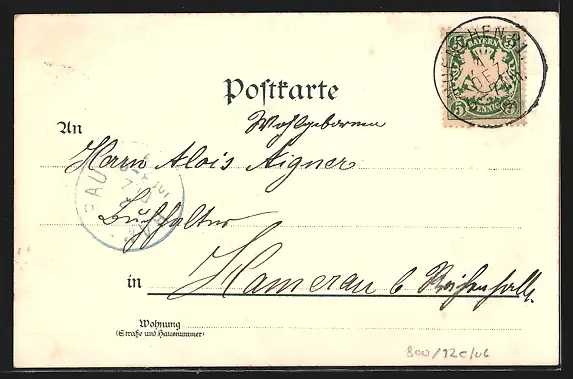 BAYERN
5 5
PFENNIG
MUENCHEN 31.
DEZ.
Postkarte
An Wohlgeboren
Herrn Alois Aigner
Buchhalter
in Hamerau b Reichenhall.
Wohnung
(Straße und Hausnummer)
800/12c/06